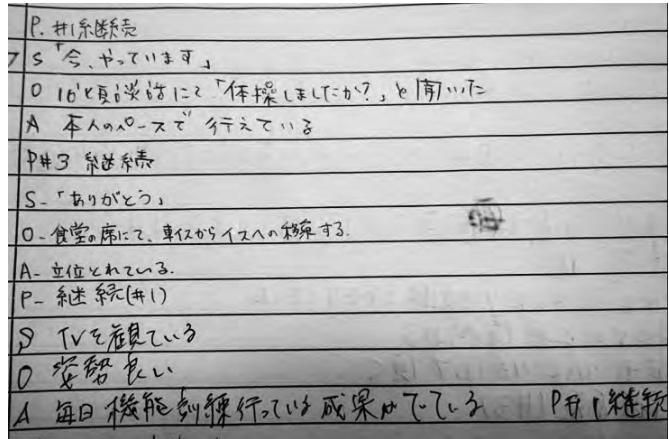 P. #1継続
S 「今、やっています」
O にて「体操しましたか?」と聞いた
A 本人のペースで行えている
P#3 継続
S-「ありがとう」
O-食堂の席にて、車イスからイスへの移乗する.
A-立位とれている.
P-継続(#1)
S TVを観ている
O 姿勢良い
A 毎日機能訓練行っている成果がでている P#1継続